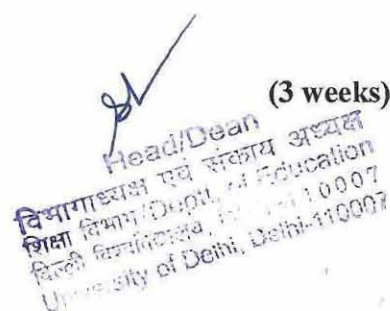 (3 weeks)
Head/Dean
विभागाध्यक्ष एवं संकाय अध्यक्ष
शिक्षा विभाग/Deptt. of Education
दिल्ली विश्वविद्यालय, 110007
University of Delhi, Delhi-110007